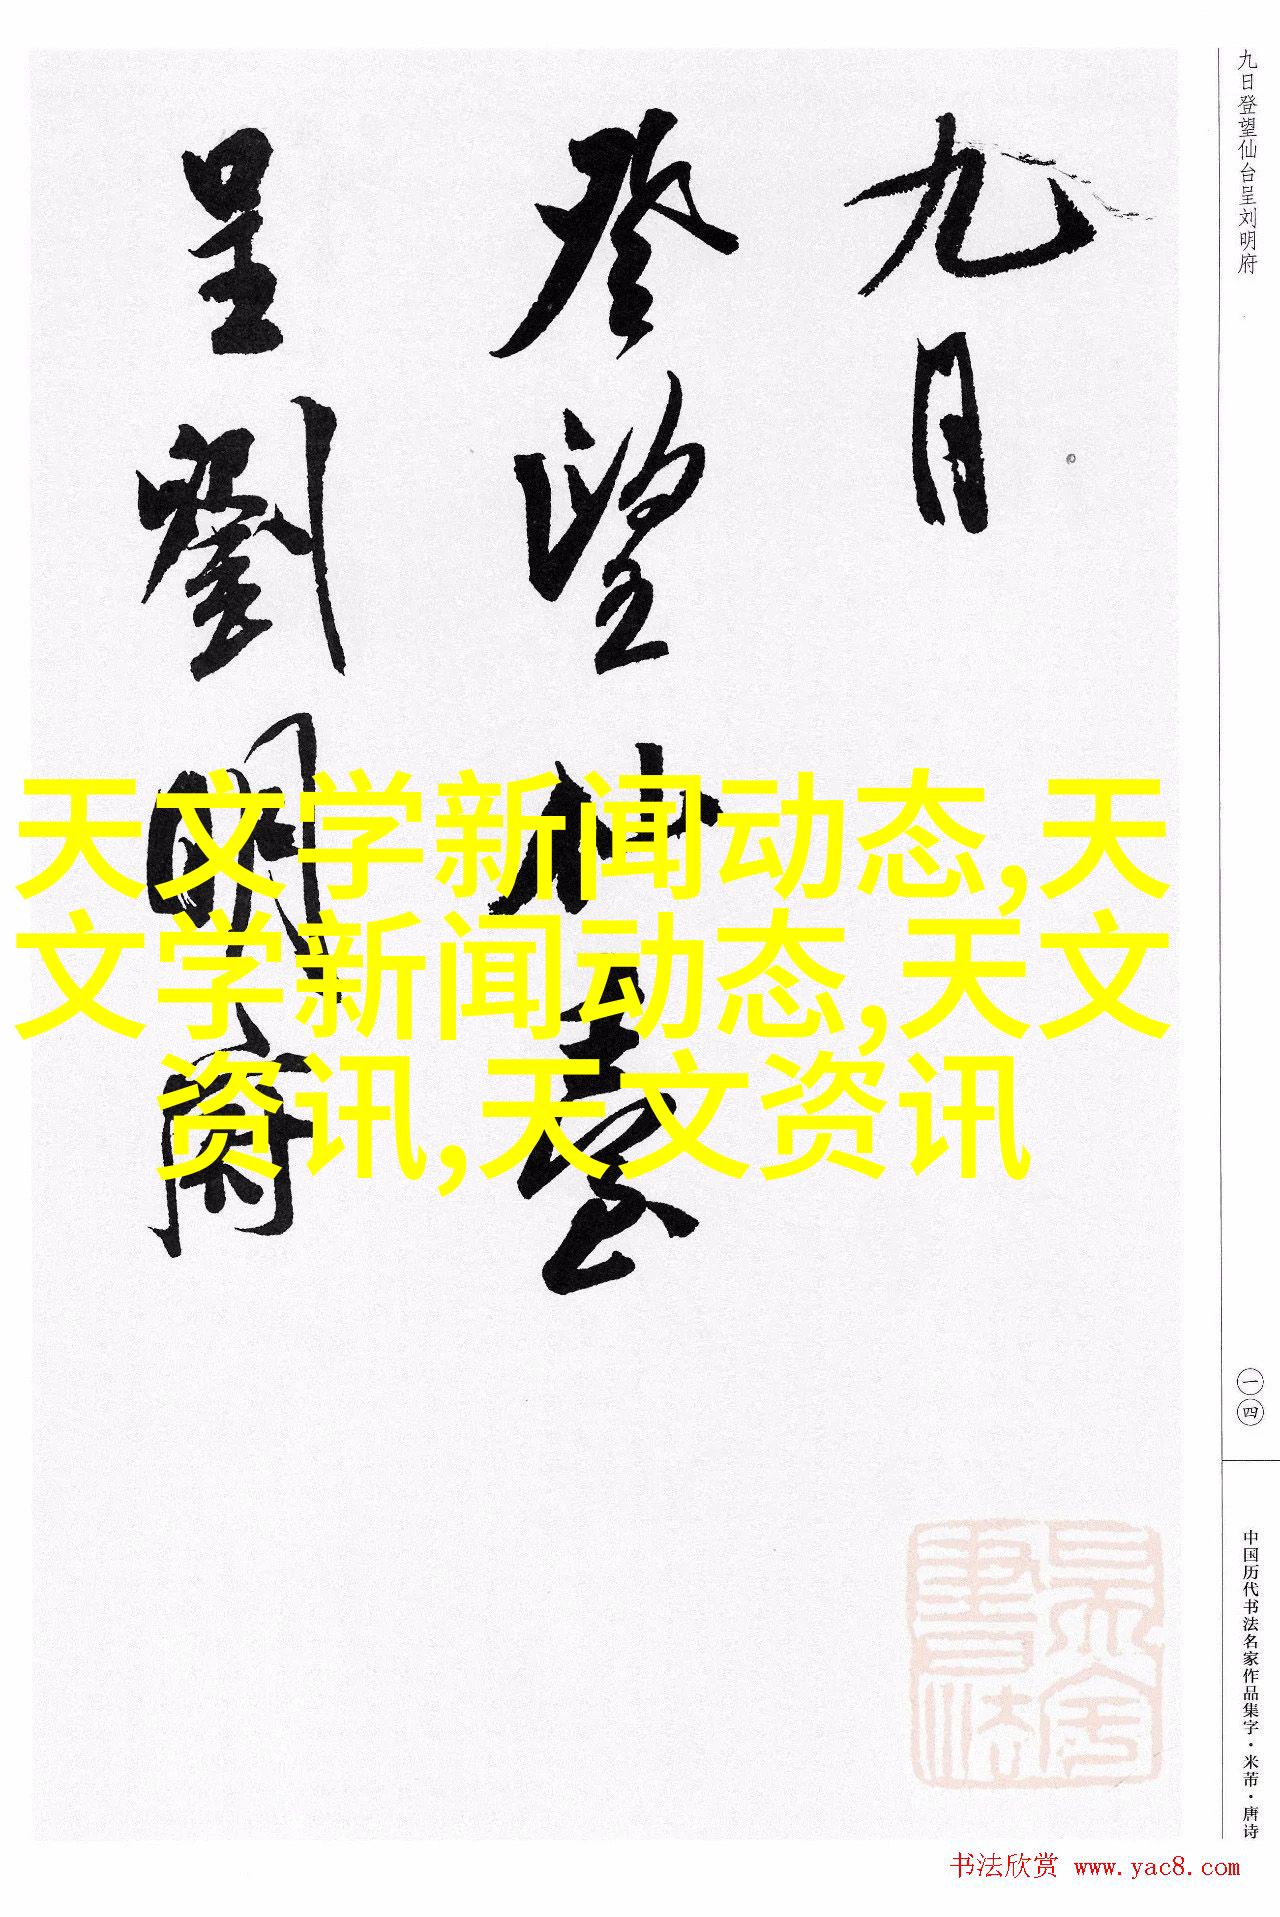 九日
登望仙臺
呈劉明府
天文学新闻动态,天
文学新闻动态,天文
资讯,天文资讯
九日登望仙台呈刘明府
一四
中国历代书法名家作品集字·米芾·唐诗
书法欣赏 www.yac8.com